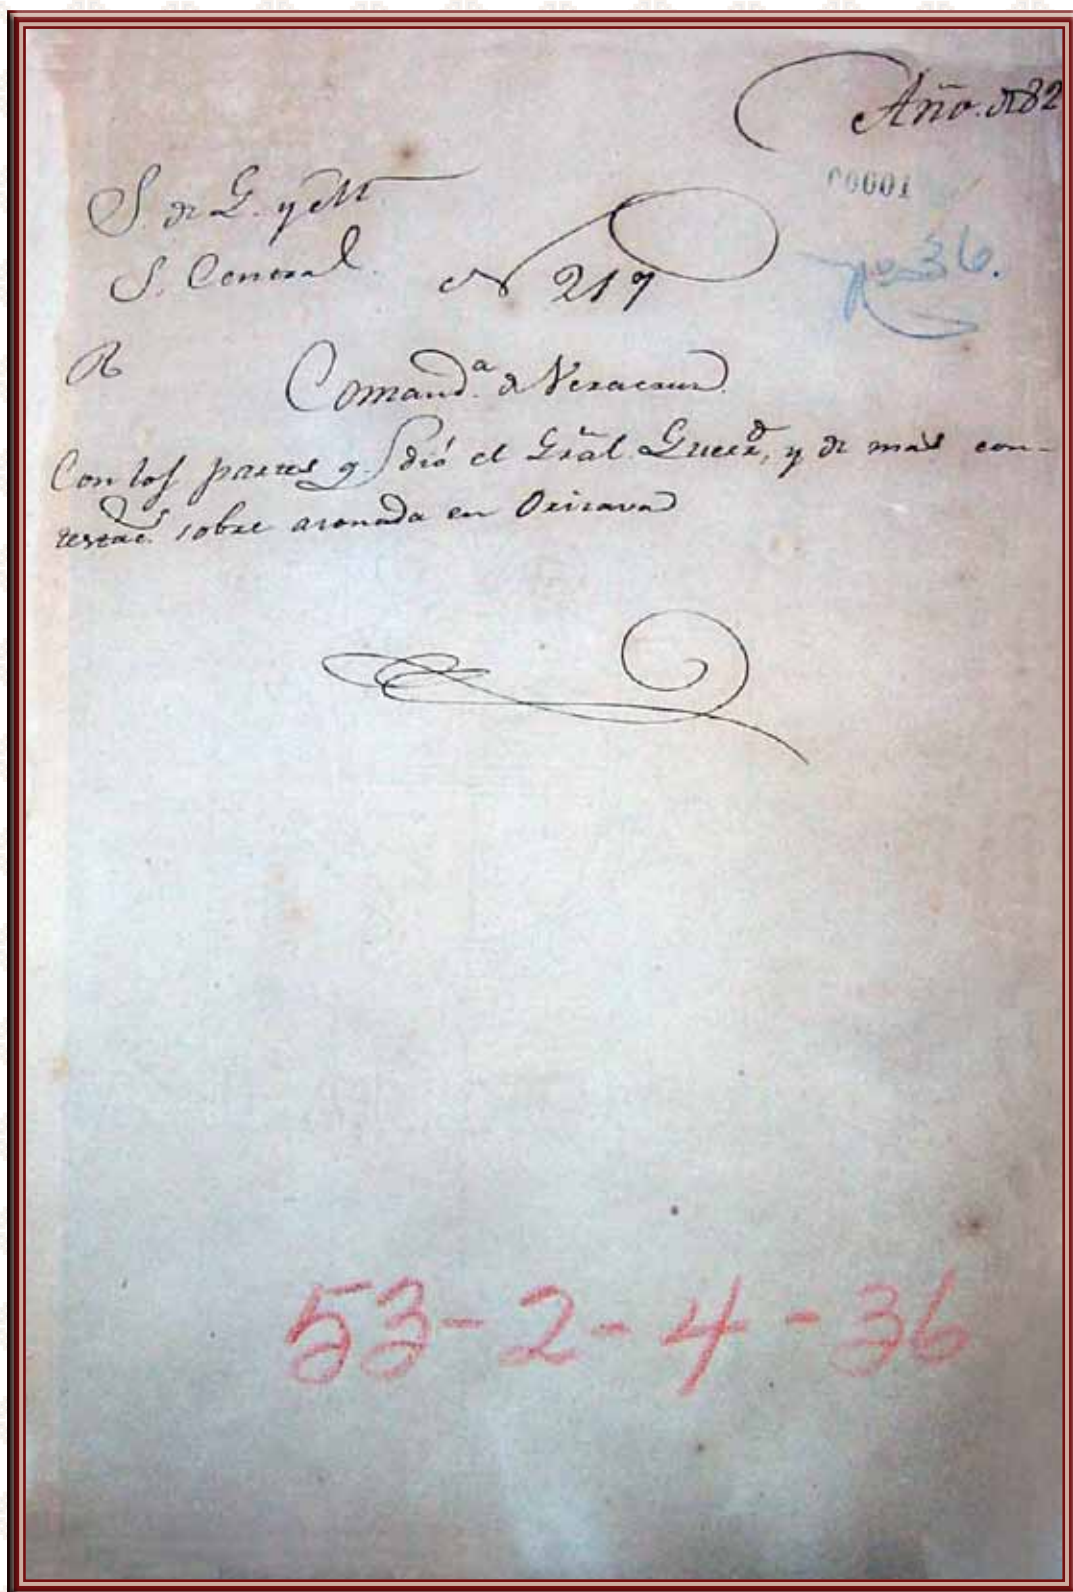 Año. de 82
00001
S. de G. y M.
S. Central.
N 217
No 36.
R
Comand.ª de Veracruz
Con los partes q. dió el Grãl. Guerr.º, y de más con-
textac.s sobre asonada en Orizava
53-2-4-36